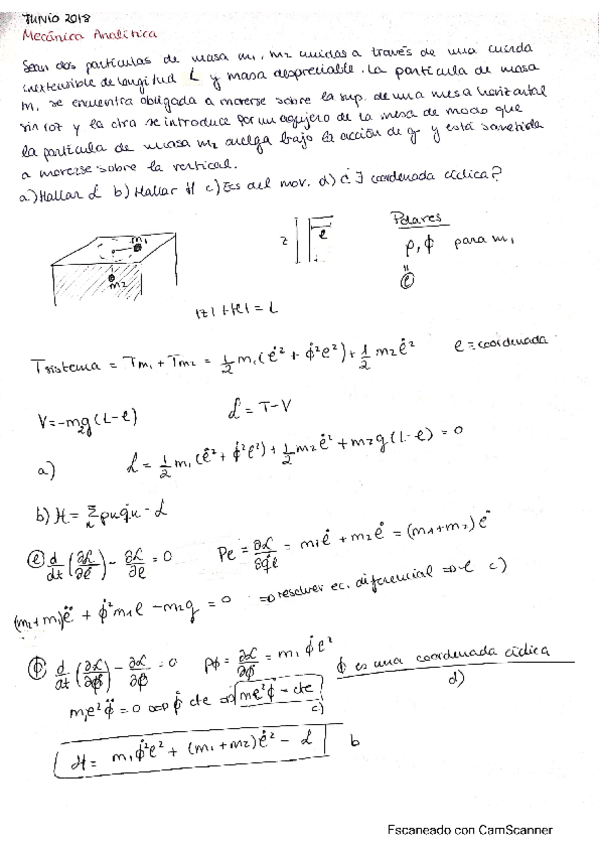 Junio 2018
Mecánica Analítica
Sean dos partículas de masa m₁, m₂ unidas a través de una cuerda
inextensible de longitud L y masa despreciable. La partícula de masa
m₁ se encuentra obligada a moverse sobre la sup. de una mesa horizontal
sin roz y la otra se introduce por un agujero de la mesa de modo que
la partícula de masa m₂ cuelga bajo la acción de g y está sometida
a moverse sobre la vertical.
a) Hallar L b) Hallar H c) Ecs del mov. d) ¿∃ coordenada cíclica?
m₁
m₂
z
l
Polares
ρ, ϕ para m₁
"
l
|z| + |l| = L
Tsistema = Tm₁ + Tm₂ = 1/2 m₁(l̇² + ϕ̇²l²) + 1/2 m₂l̇² l = coordenada
V = -m₂g(L-l) L = T-V
a) L = 1/2 m₁(l̇² + ϕ̇²l²) + 1/2 m₂l̇² + m₂g(L-l) = 0
b) H = Σ pₖq̇ₖ - L
l d/dt(∂L/∂l̇) - ∂L/∂l = 0 Pl = ∂L/∂q̇l = m₁l̇ + m₂l̇ = (m₁+m₂)l̇
(m₂+m₁)l̈ + ϕ̇²m₁l - m₂g = 0 ⇒ resolver ec. diferencial ⇒ l c)
ϕ d/dt(∂L/∂ϕ̇) - ∂L/∂ϕ = 0 pϕ = ∂L/∂ϕ̇ = m₁ϕ̇l² ϕ es una coordenada cíclica
d)
m₁l²ϕ̈ = 0 ⇒ ϕ̇ cte ⇒ ml²ϕ̇ = cte
c)
H = m₁ϕ̇²l² + (m₁+m₂)l̇² - L b
Escaneado con CamScanner